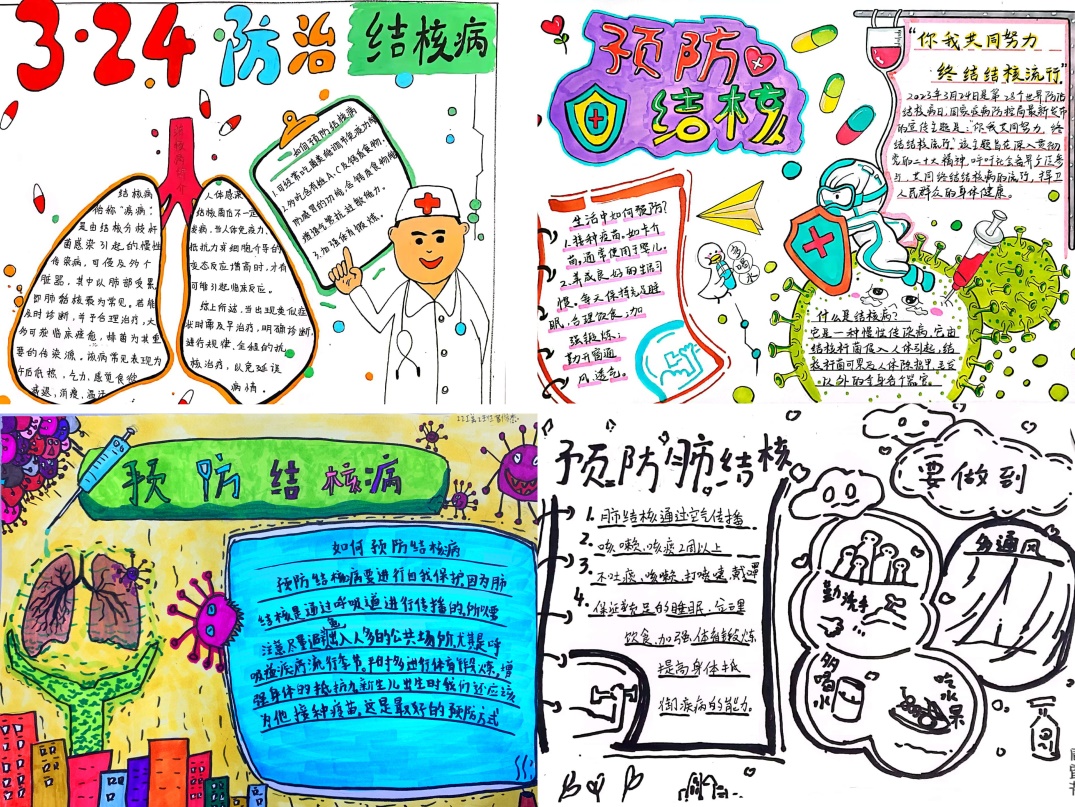 3·24 防治 结核病
结核病
俗称“痨病”
是由结核分枝杆
菌感染引起的慢性
传染病，可侵及多个
脏器，其中以肺部受累
即肺结核最为常见，若能
及时诊断，并予合理治疗，大
多可获临床痊愈，排菌为其重
要的传染源。该病常见表现为
午后低热，乏力，感觉食欲
减退，消瘦，盗汗
人体感染
结核菌后不一定
发病，当人体免疫力，
抵抗力或细胞介导的
变态反应增高时，才有
可能引起临床反应。
综上所述，当出现类似症
状时需及早治疗，明确诊断，
进行规律、全程的抗
核治疗，以免延误
病情。
如何预防结核病
3.加强体育锻炼。
预防
结核
“你我共同努力
终结结核流行”
2023年3月24日是第28个世界防治
结核病日，国家疾病防控局最新发布
的宣传主题是：“你我共同努力 终
结结核流行”该主题旨在深入贯彻
党的二十大精神，呼吁社会各界广泛参
与，共同终结结核病的流行，捍卫
人民群众的身体健康。
生活中如何预防？
1.接种疫苗，如卡介
苗，通常使用于婴儿。
2.养成良好的生活习
惯，每天保持充足睡
眠，合理饮食，加
强锻炼，
勤开窗通
风透气。
多喝水
什么是结核病？
它是一种慢性传染病，它由
结核杆菌侵入人体引起，结
核杆菌可累及人体除指甲、毛发
以外的全身各个器官。
预防结核病
如何预防结核病
预防结核病要进行自我保护因为肺
结核是通过呼吸道进行传播的所以要
注意尽量避免出入人多的公共场所尤其是呼
吸道疾病流行季节，平时多进行体育锻炼，增
强身体的抵抗力新生儿出生时我们还应该
为他接种疫苗，这是最好的预防方式
预防肺结核
1.肺结核通过空气传播
2.咳嗽、咳痰2周以上
3.不吐痰、咳嗽、打喷嚏，戴口罩
4.保证充足的睡眠、合理
饮食，加强体育锻炼
提高身体抵
御疾病的能力。
要做到
多通风
勤洗手
多喝水
吃水果